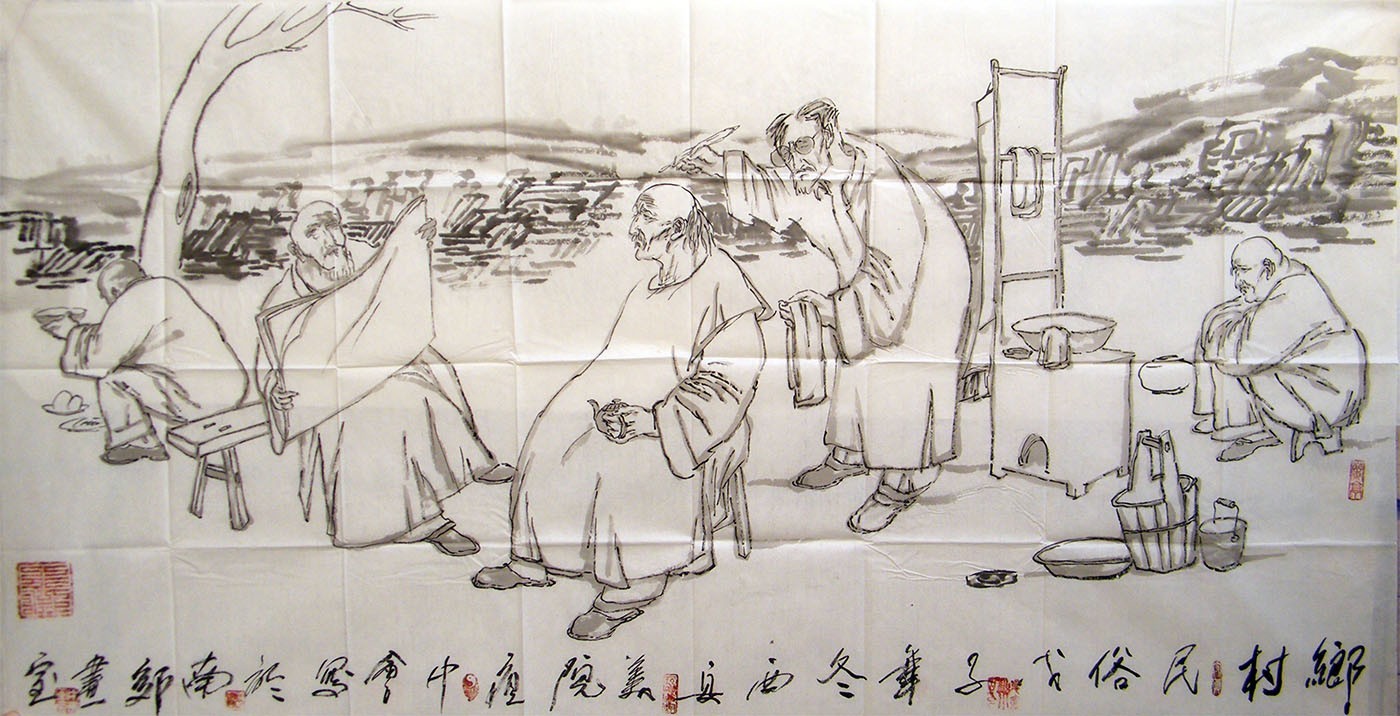 鄉村民俗戊子年冬西安美院中會寫於南郊畫室